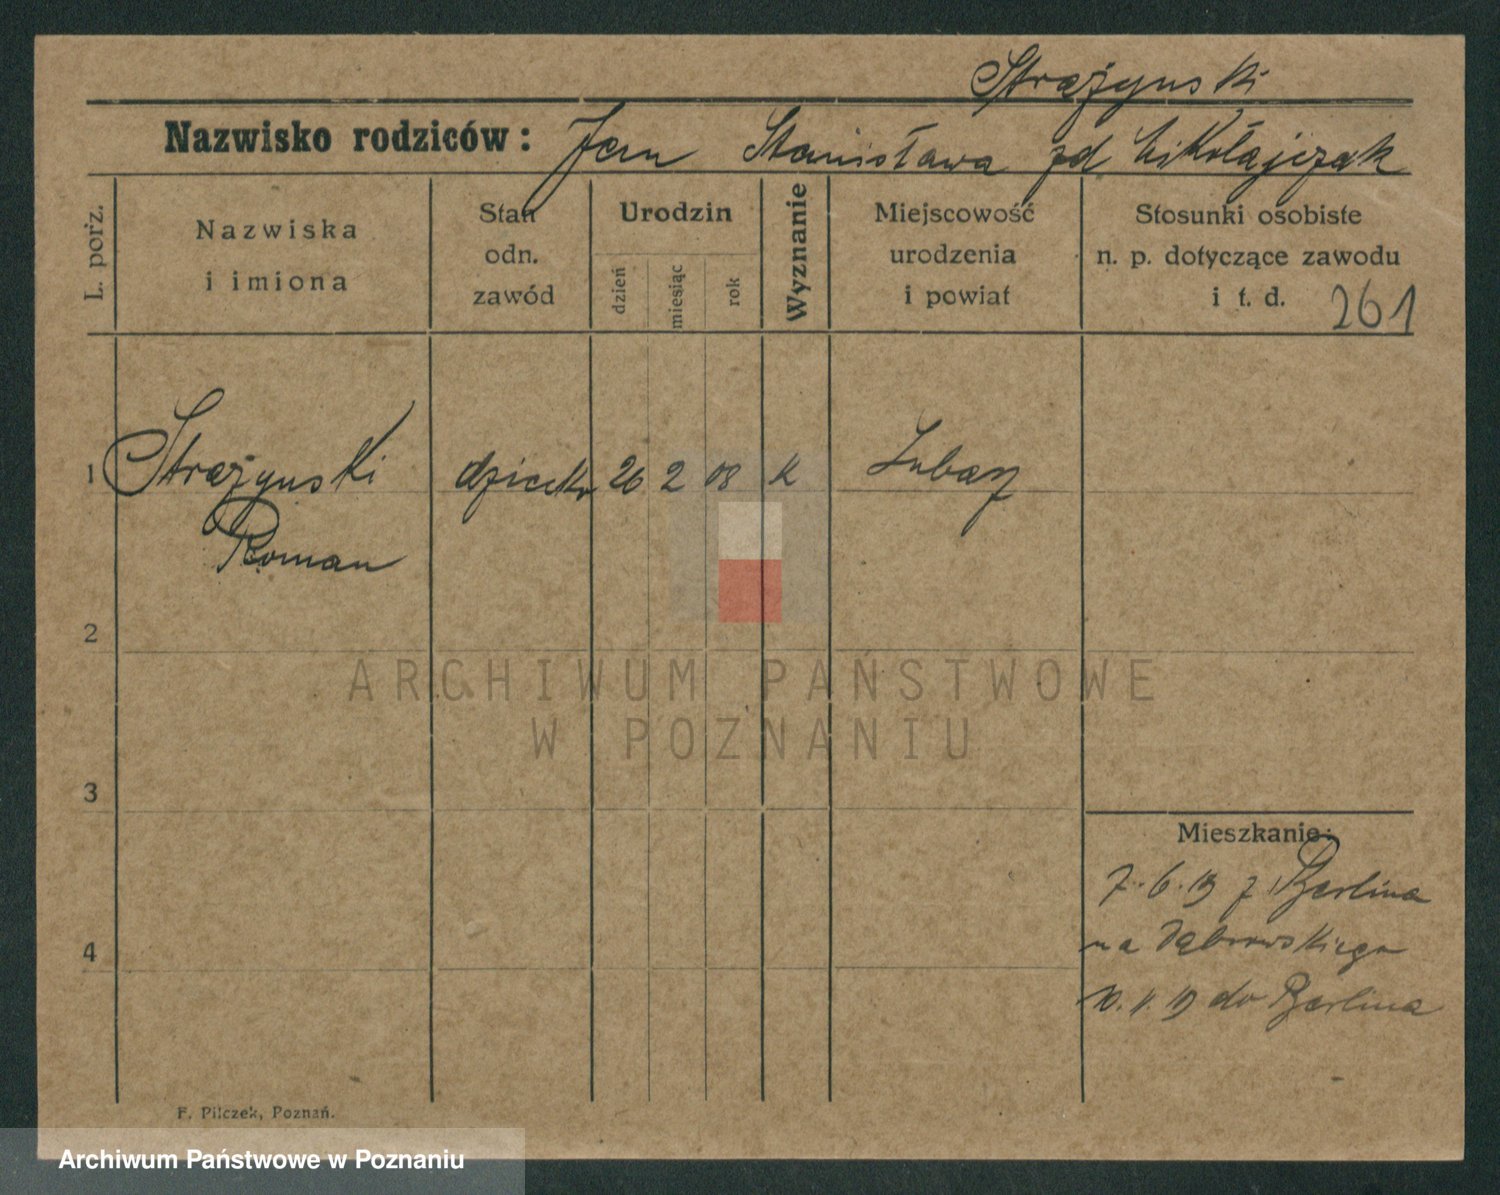 Strażynski
Nazwisko rodziców: Jan Stanisława zd Mikołajczak
L. porz.
Nazwiska
i imiona
Stan
odn.
zawód
Urodzin
dzień
miesiąc
rok
Wyznanie
Miejscowość
urodzenia
i powiat
Stosunki osobiste
n. p. dotyczące zawodu
i t. d. 261
1 Strażynski dziecko 26 2 08 k Lubasz
Roman
2
3
4
Mieszkanie:
7.6.19 z Berlina
na Dąbrowskiego
do Berlina
F. Pilczek, Poznań.
ARCHIWUM PAŃSTWOWE
W POZNANIU
Archiwum Państwowe w Poznaniu